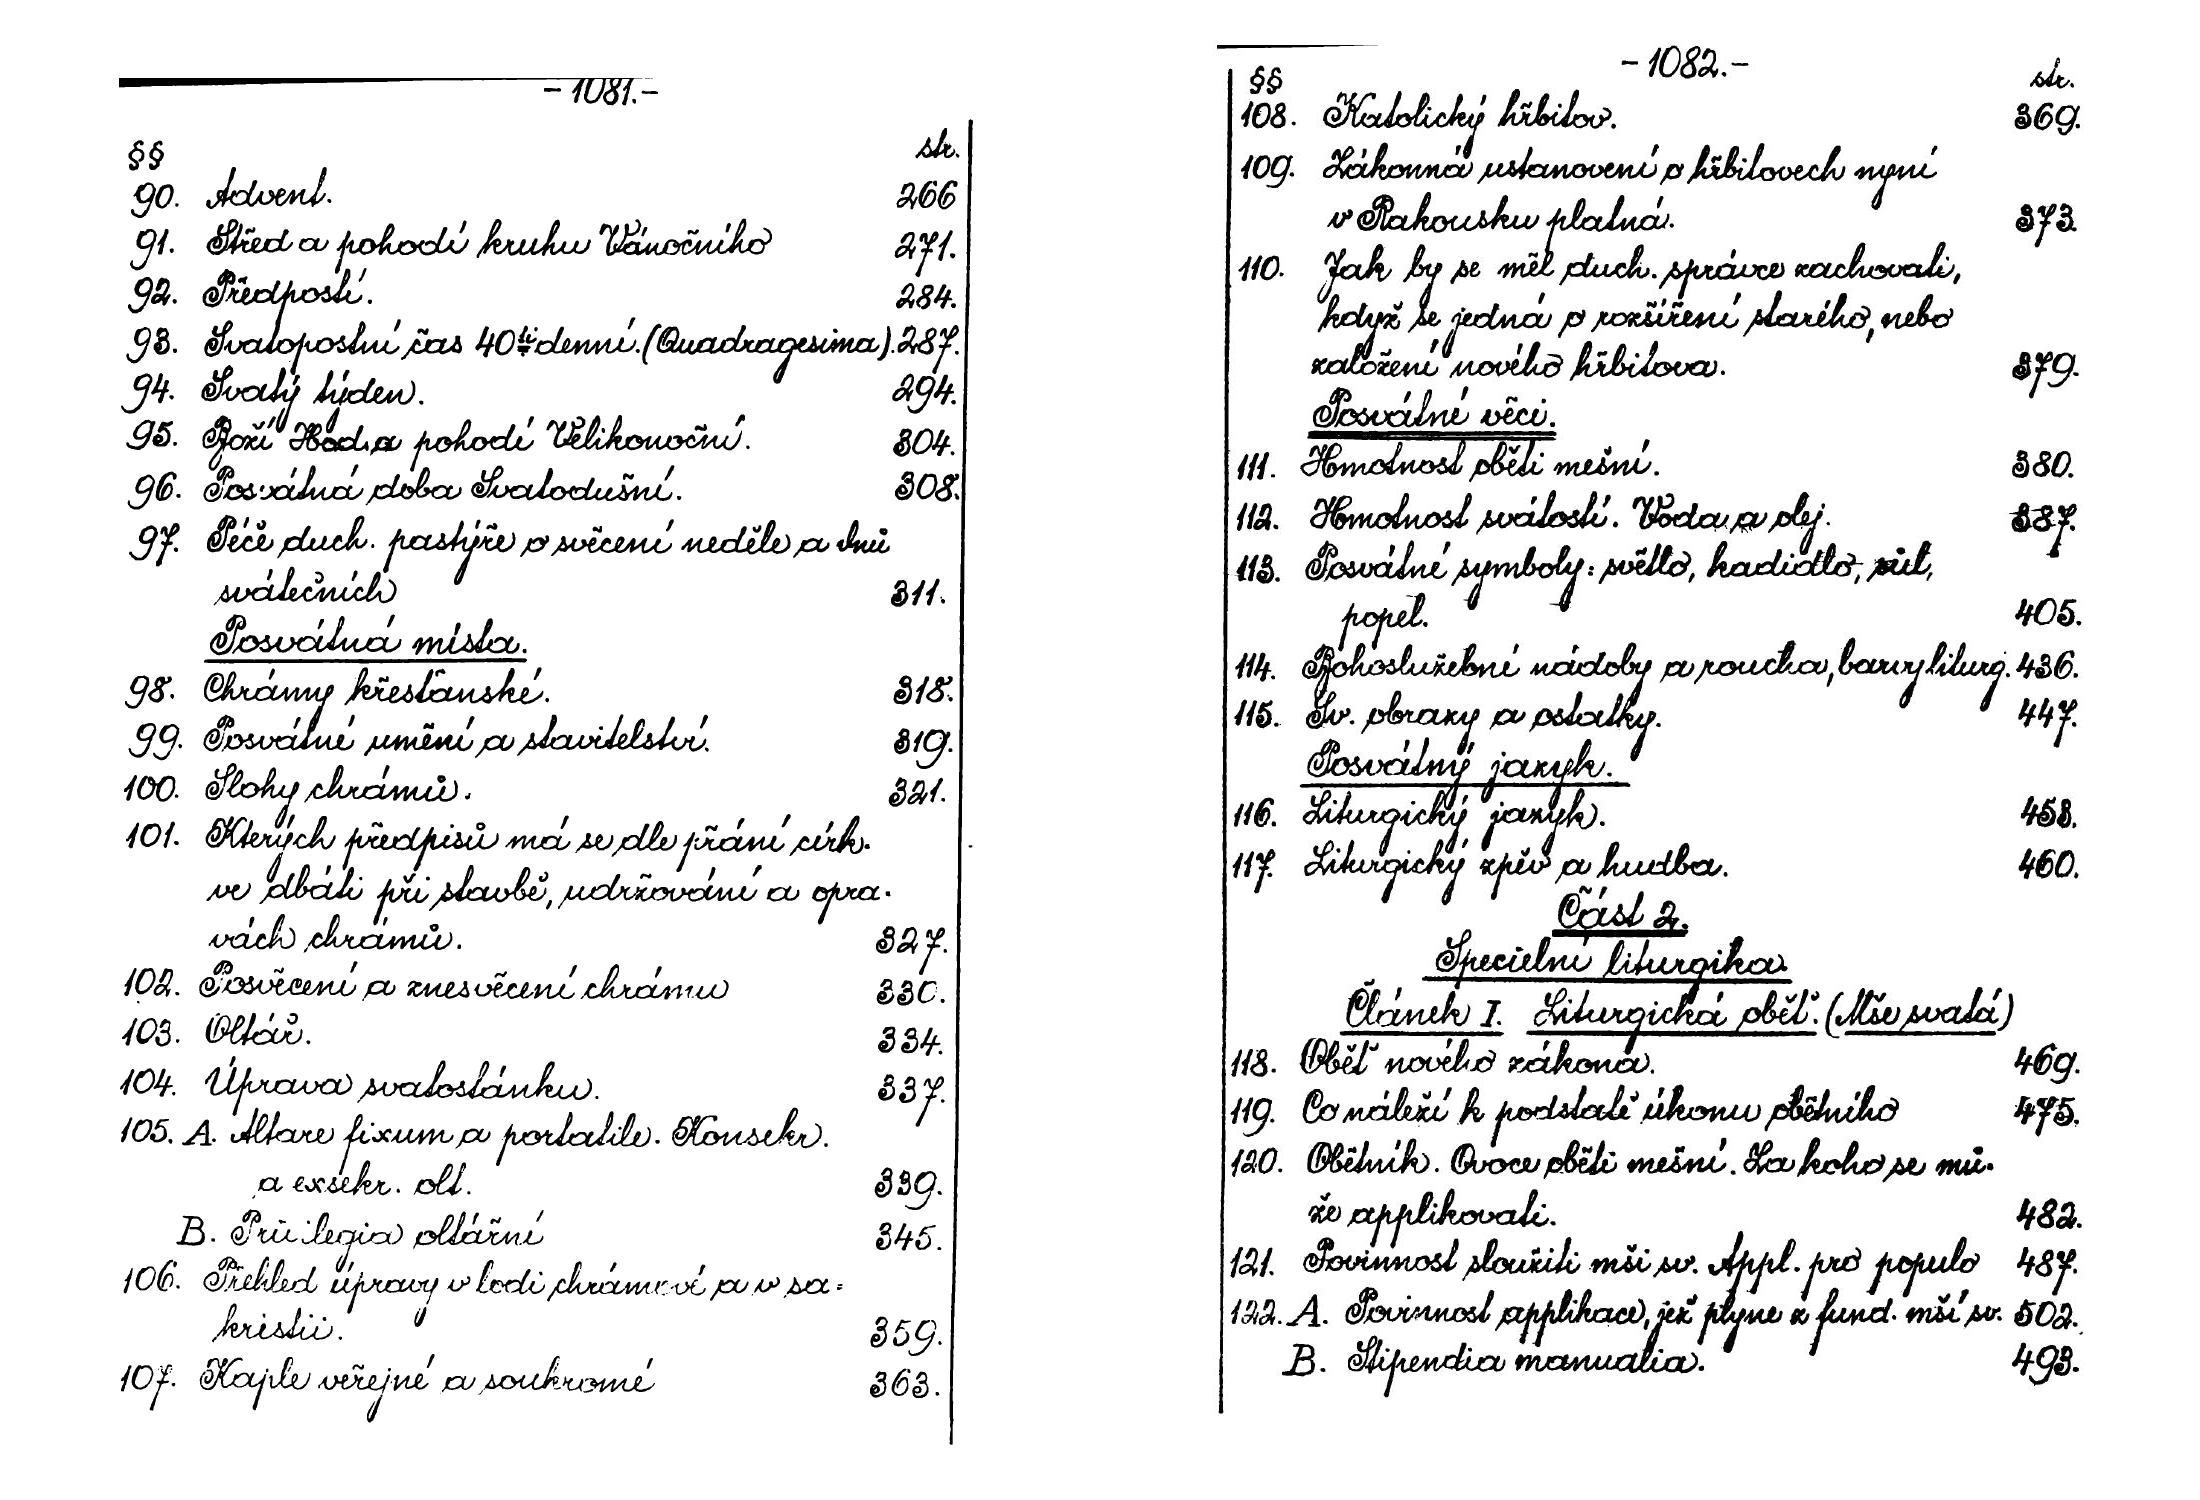 - 1081. -
§§ str.
90. Advent. 266
91. Střed a pohodí kruhu Vánočního 271.
92. Předpostí. 284.
93. Svatopostní čas 40ti denní. (Quadragesima). 287.
94. Svatý týden. 294.
95. Boží Hod a pohodí Velikonoční. 304.
96. Posvátná doba Svatodušní. 308.
97. Péče duch. pastýře o svěcení neděle a dnů
svátečních 311.
Posvátná místa.
98. Chrámy křesťanské. 318.
99. Posvátné umění a stavitelství. 319.
100. Slohy chrámů. 321.
101. Kterých předpisů má se dle přání círk-
ve dbáti při stavbě, udržování a opra-
vách chrámů. 327.
102. Posvěcení a znesvěcení chrámu 330.
103. Oltář. 334.
104. Úprava svatostánku. 337.
105. A. Altare fixum a portatile. Konsekr.
a exsekr. olt. 339.
B. Privilegia oltářní 345.
106. Přehled úpravy v lodi chrámové a v sa-
kristii. 359.
107. Kaple veřejné a soukromé 363.
- 1082. -
§§ str.
108. Katolický hřbitov. 369.
109. Zákonná ustanovení o hřbitovech nyní
v Rakousku platná. 373.
110. Jak by se měl duch. správce zachovati,
když se jedná o rozšíření starého, nebo
založení nového hřbitova. 379.
Posvátné věci.
111. Hmotnost oběti mešní. 380.
112. Hmotnost svátostí. Voda a olej. 387.
113. Posvátné symboly: světlo, kadidlo, sůl,
popel. 405.
114. Bohoslužebné nádoby a roucha, barvy liturg. 436.
115. Sv. obrazy a ostatky. 447.
Posvátný jazyk.
116. Liturgický jazyk. 458.
117. Liturgický zpěv a hudba. 460.
Část 2.
Specielní liturgika.
Článek I. Liturgická oběť. (Mše svatá)
118. Oběť nového zákona. 469.
119. Co náleží k podstatě úkonu obětního 475.
120. Obětník. Ovoce oběti mešní. Za koho se mů-
že applikovati. 482.
121. Povinnost sloužiti mši sv. Appl. pro populo 487.
122. A. Povinnost applikace, jež plyne z fund. mší sv. 502.
B. Stipendia manualia. 493.